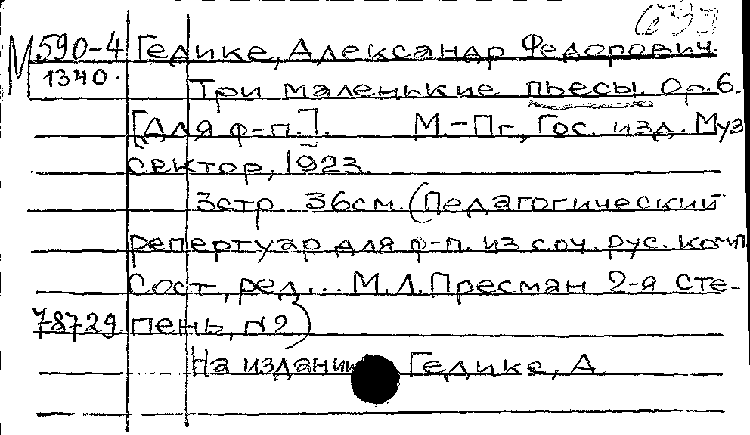 М 590-4 Гедике, Александр Федорович.
1340. Три маленькие пьесы. Ор.6.
[Для ф-п.]. М-Пг, Гос. изд. Муз
сектор, 1923.
3стр 36см. (Педагогический
репертуар для ф-п. из соч. рус. комп
Сост, ред... М.Л. Пресман 2-я сте-
78729 пень, N2)
На издании Гедике, А